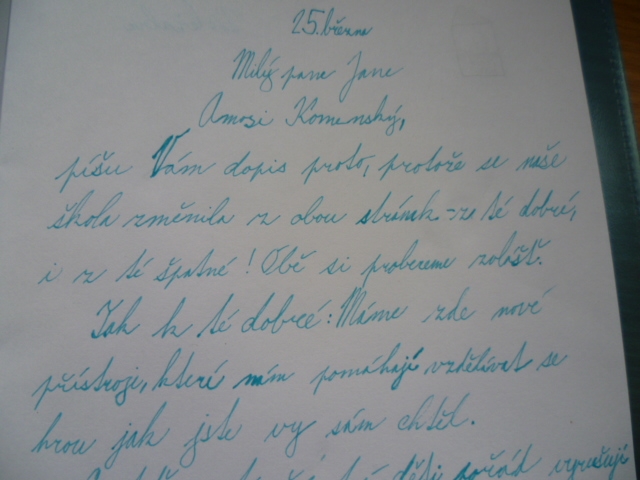 25. března
Milý pane Jane
Amosi Komenský,
píšu Vám dopis proto, protože se naše
škola změnila z obou stránek - ze té dobré,
i z té špatné! Obě si probereme zvlášť.
Tak k té dobré: Máme zde nové
přístroje, které nám pomáhají vzdělívat se
hrou jak jste vy sám chtěl.
děti pořád vyrušují